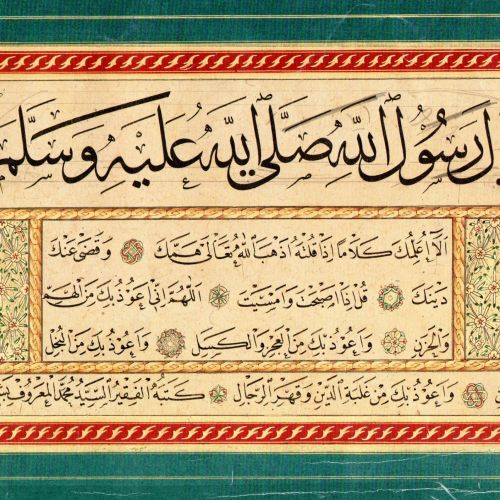 رَسُولُ اللهِ صَلَّى اللهُ عَلَيْهِ وَسَلَّمَ
اَلَا اُعَلِّمُكَ كَلَامًا اِذَا قُلْتَهُ اَذْهَبَ اللهُ تَعَالٰى هَمَّكَ وَقَضٰى عَنْكَ
دَيْنَكَ قُلْ اِذَا اَصْبَحْتَ وَاَمْسَيْتَ اَللّٰهُمَّ اِنِّى اَعُوذُ بِكَ مِنَ الْهَمِّ
وَالْحَزَنِ وَاَعُوذُ بِكَ مِنَ الْعَجْزِ وَالْكَسَلِ وَاَعُوذُ بِكَ مِنَ الْبُخْلِ
وَاَعُوذُ بِكَ مِنْ غَلَبَةِ الدَّيْنِ وَقَهْرِ الرِّجَالِ كَتَبَهُ الْفَقِيرُ السَّيِّدُ مُحَمَّدُ الْمَعْرُوفُ